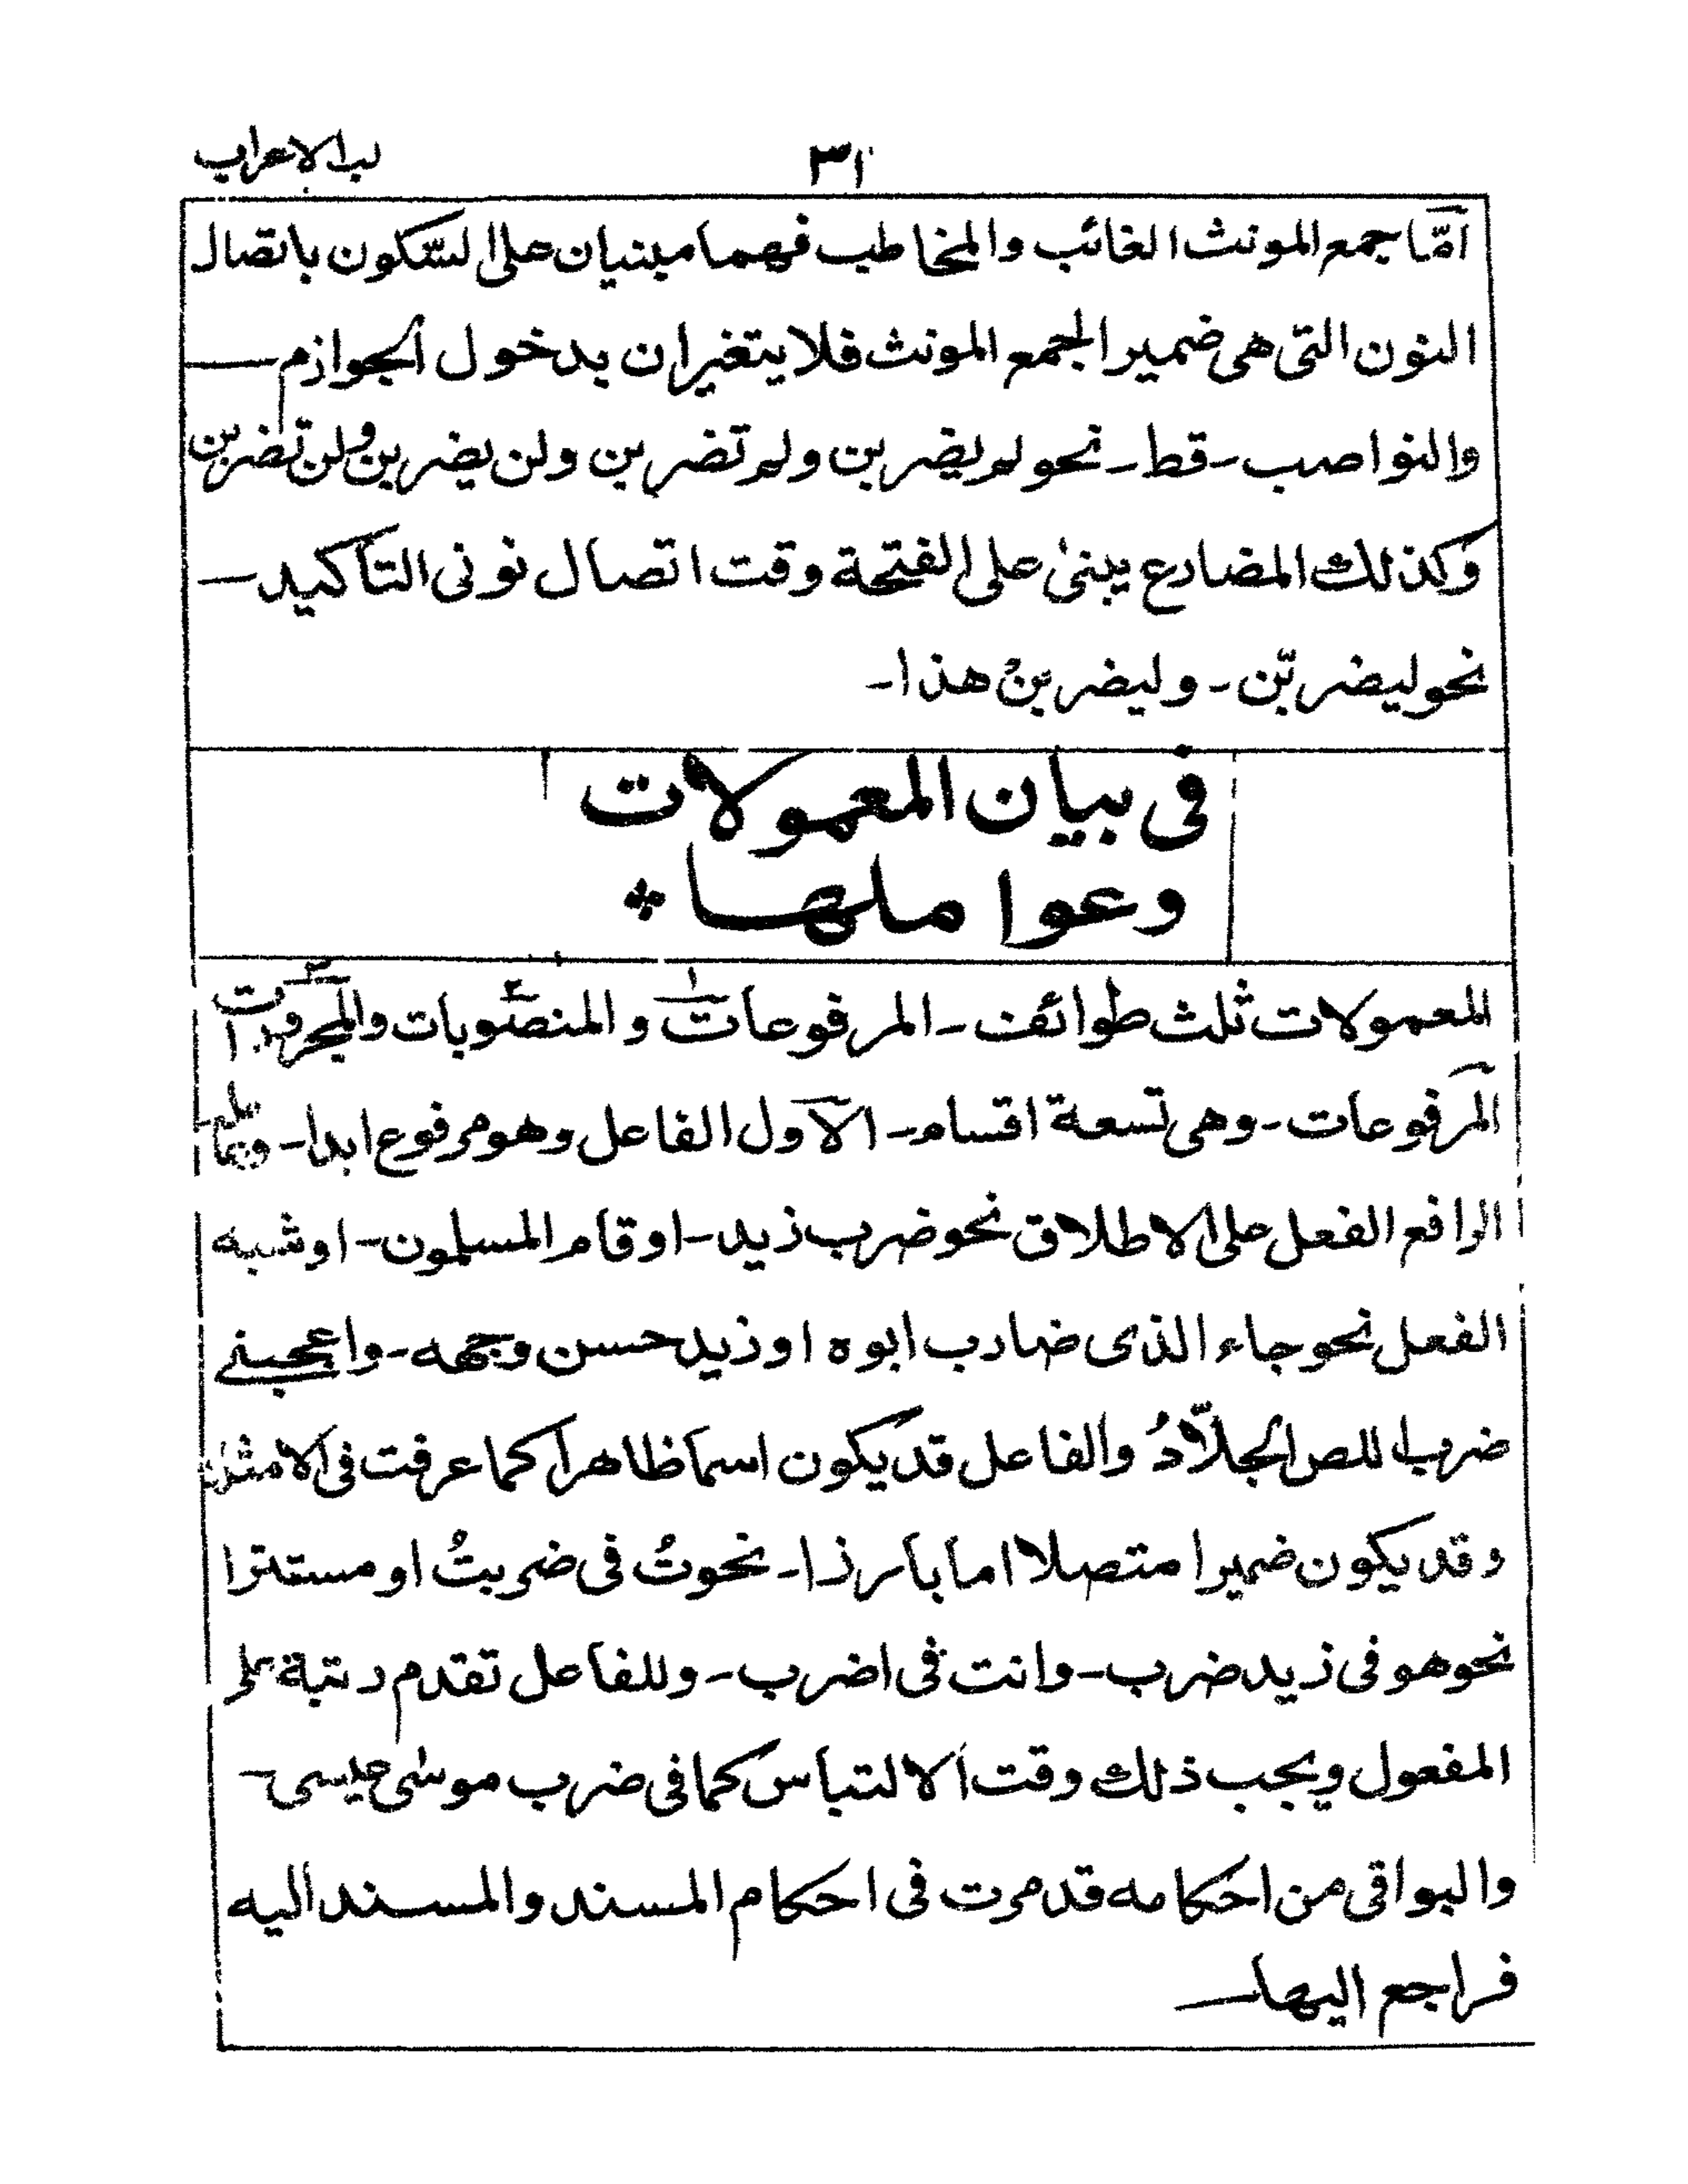 ٣١ لب الاعراب
امّا جمع المونث الغائب والمخاطب فهما مبنيان على السّكون باتصال
النون التى هى ضمير الجمع المونث فلا يتغيران بدخول الجوازم —
والنواصب - قط - نحو لم يضربن ولم تضربن ولن يضربن ولن تضربن
وكذلك المضارع يبنىٰ على الفتحة وقت اتصال نونى التاكيد —
نحو ليضربنّ - وليضربنْ هذا -
فى بيان المعمولات
وعواملها
المعمولات ثلث طوائف - المرفوعات والمنصوبات والمجرورات
المرفوعات - وهى تسعة اقسام - الاول الفاعل وهو مرفوع ابدا -
الرافع الفعل على الاطلاق نحو ضرب زيد - او قام المسلمون - او شبه
الفعل نحو جاء الذى ضارب ابوه او زيد حسن وجهه - واعجبنے
ضرب اللص الجلاّدُ والفاعل قد يكون اسما ظاهرا كما عرفت فى الامثلة
وقد يكون ضميرا متصلا اما بارزا - نحو تُ فى ضربتُ او مستترا
نحو هو فى زيد ضرب - وانت فى اضرب - وللفاعل تقدم رتبة على
المفعول ويجب ذلك وقت الالتباس كما فى ضرب موسٰى عيسى -
والبواقى من احكامه قد مرت فى احكام المسند والمسند اليه
فراجع اليها —